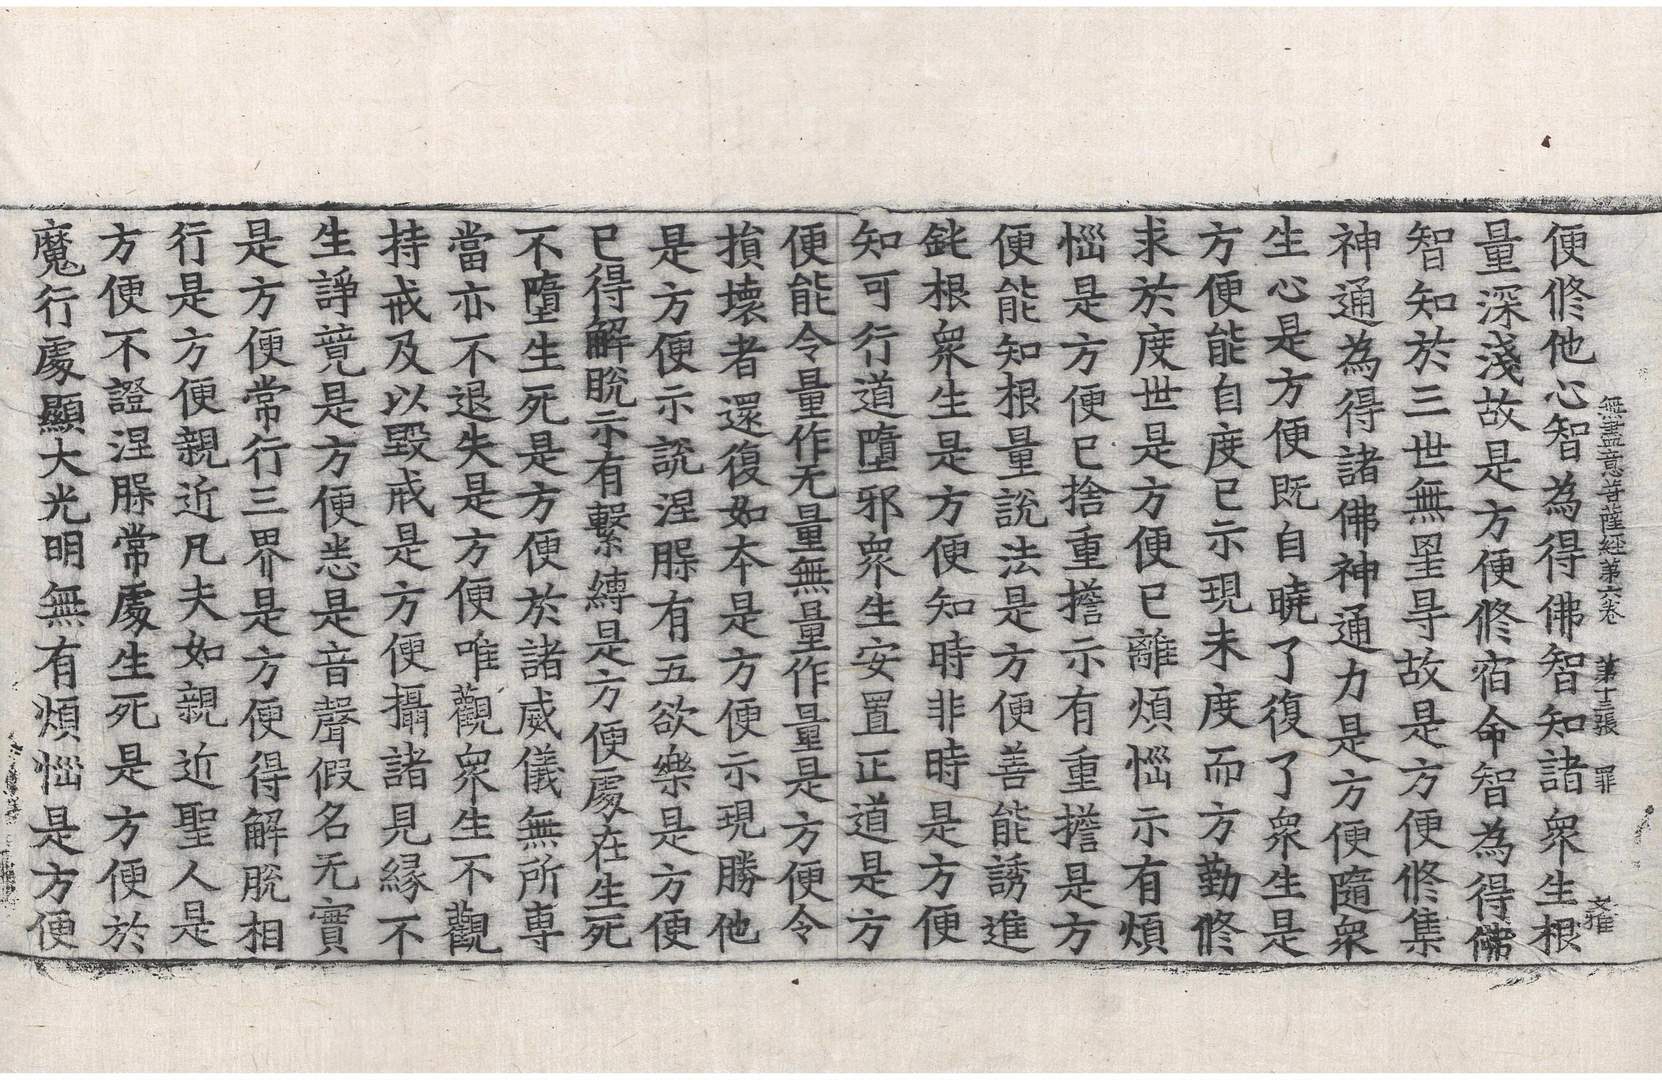 無盡意菩薩経第六卷 第十三張 罪 文雅
便修他心智為得佛智知諸衆生根
量深淺故是方便修宿命智為得佛
智知於三世無罣㝵故是方便修集
神通為得諸佛神通力是方便隨衆
生心是方便既自曉了復了衆生是
方便能自度已示現未度而方勤修
求於度世是方便已離煩惱示有煩
惱是方便已捨重擔示有重擔是方
便能知根量說法是方便善能誘進
鈍根衆生是方便知時非時是方便
知可行道墮邪衆生安置正道是方
便能令量作无量無量作量是方便令
損壞者還復如本是方便示現勝他
是方便示說涅槃有五欲樂是方便
已得解脫示有繫縛是方便處在生死
不墮生死是方便於諸威儀無所専
當亦不退失是方便唯觀衆生不觀
持戒及以毀戒是方便攝諸見縁不
生諍競是方便恚是音聲假名无實
是方便常行三界是方便得解脫相
行是方便親近凡夫如親近聖人是
方便不證涅槃常處生死是方便於
魔行處顯大光明無有煩惱是方便